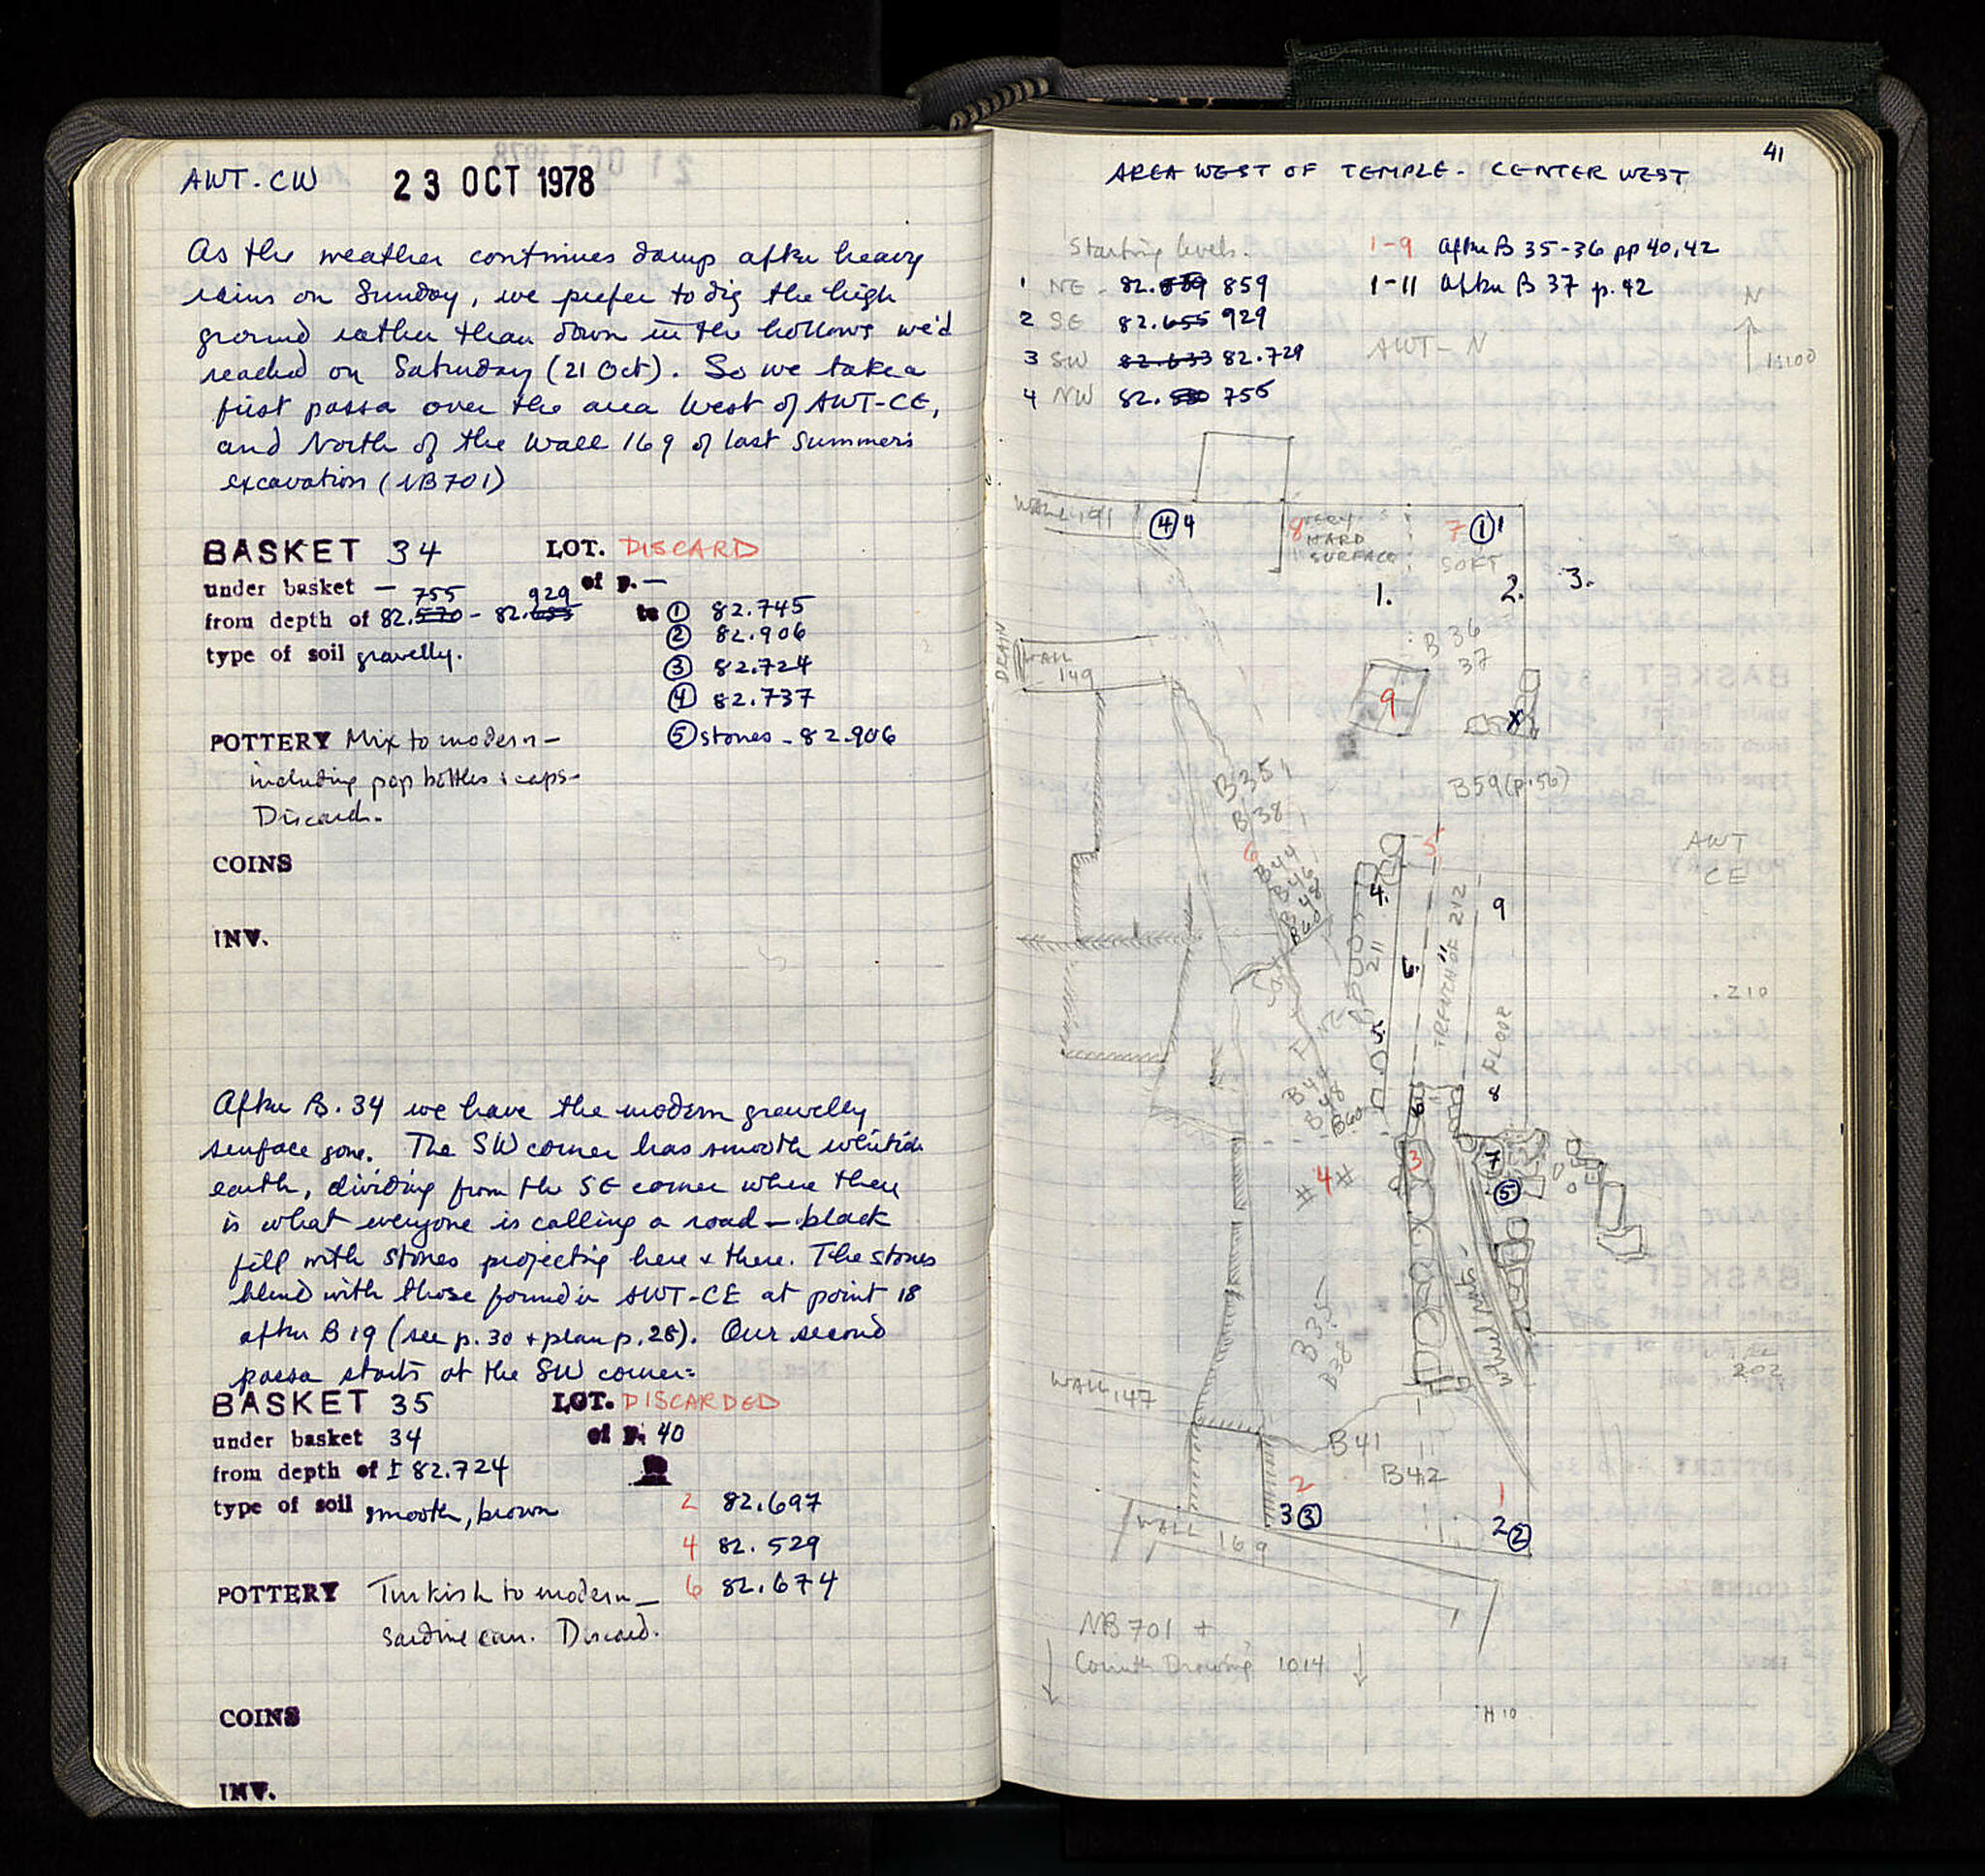 AWT-CW 23 OCT 1978
As the weather continues damp after heavy
rains on Sunday, we prefer to dig the high
ground rather than down in the hollows we'd
reached on Saturday (21 Oct). So we take a
first passa over the area West of AWT-CE,
and North of the Wall 169 of last summer's
excavation (NB701)
BASKET 34 LOT. DISCARD
under basket — of p. —
from depth of 82.570 755 - 82.655 929 to ① 82.745
② 82.906
type of soil gravelly. ③ 82.724
④ 82.737
POTTERY Mix to modern - ⑤ stones - 82.906
including pop bottles & caps-
Discard.
COINS
INV.
After B. 34 we have the modern gravelly
surface gone. The SW corner has smooth whitish
earth, dividing from the SE corner where there
is what everyone is calling a road - black
fill with stones projecting here & there. The stones
blend with those found in AWT-CE at point 18
after B 19 (see p. 30 + plan p. 28). Our second
passa starts at the SW corner:
BASKET 35 LOT. DISCARDED
under basket 34 of p. 40
from depth of ± 82.724
type of soil smooth, brown 2 82.697
4 82.529
POTTERY Turkish to modern — 6 82.674
sardine can. Discard.
COINS
INV.
41
AREA WEST OF TEMPLE - CENTER WEST
Starting levels. 1-9 After B 35-36 pp 40,42
1 NE - 82. 859 1-11 After B 37 p. 42
2 SE 82.655 929
3 SW 82.633 82.729 AWT-N
4 NW 82. 755
N
1:100
WALL 191 ④ 4 8 VERY HARD SURFACE 7 ① 1
SOFT
1. 2. 3.
DRAIN
WALL 149
B 36
37
9
X
B35
B38
B59 (p.56)
6
B44
B46
B48
B60
5
AWT
CE
4.
211
6.
TRENCH OF 212
9
.210
5.
FLOOR
8
B44
B48
B60
6
# 4 #
3
7
⑤
B35
B38
Wheel ruts
WALL
202
WALL 147
B41
B42
2
1
3 ③
2 ②
WALL 169
NB 701 +
Corinth Drawing 1014
H 10